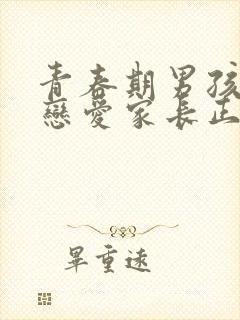 青春期男孩
戀愛家長正
畢重遠